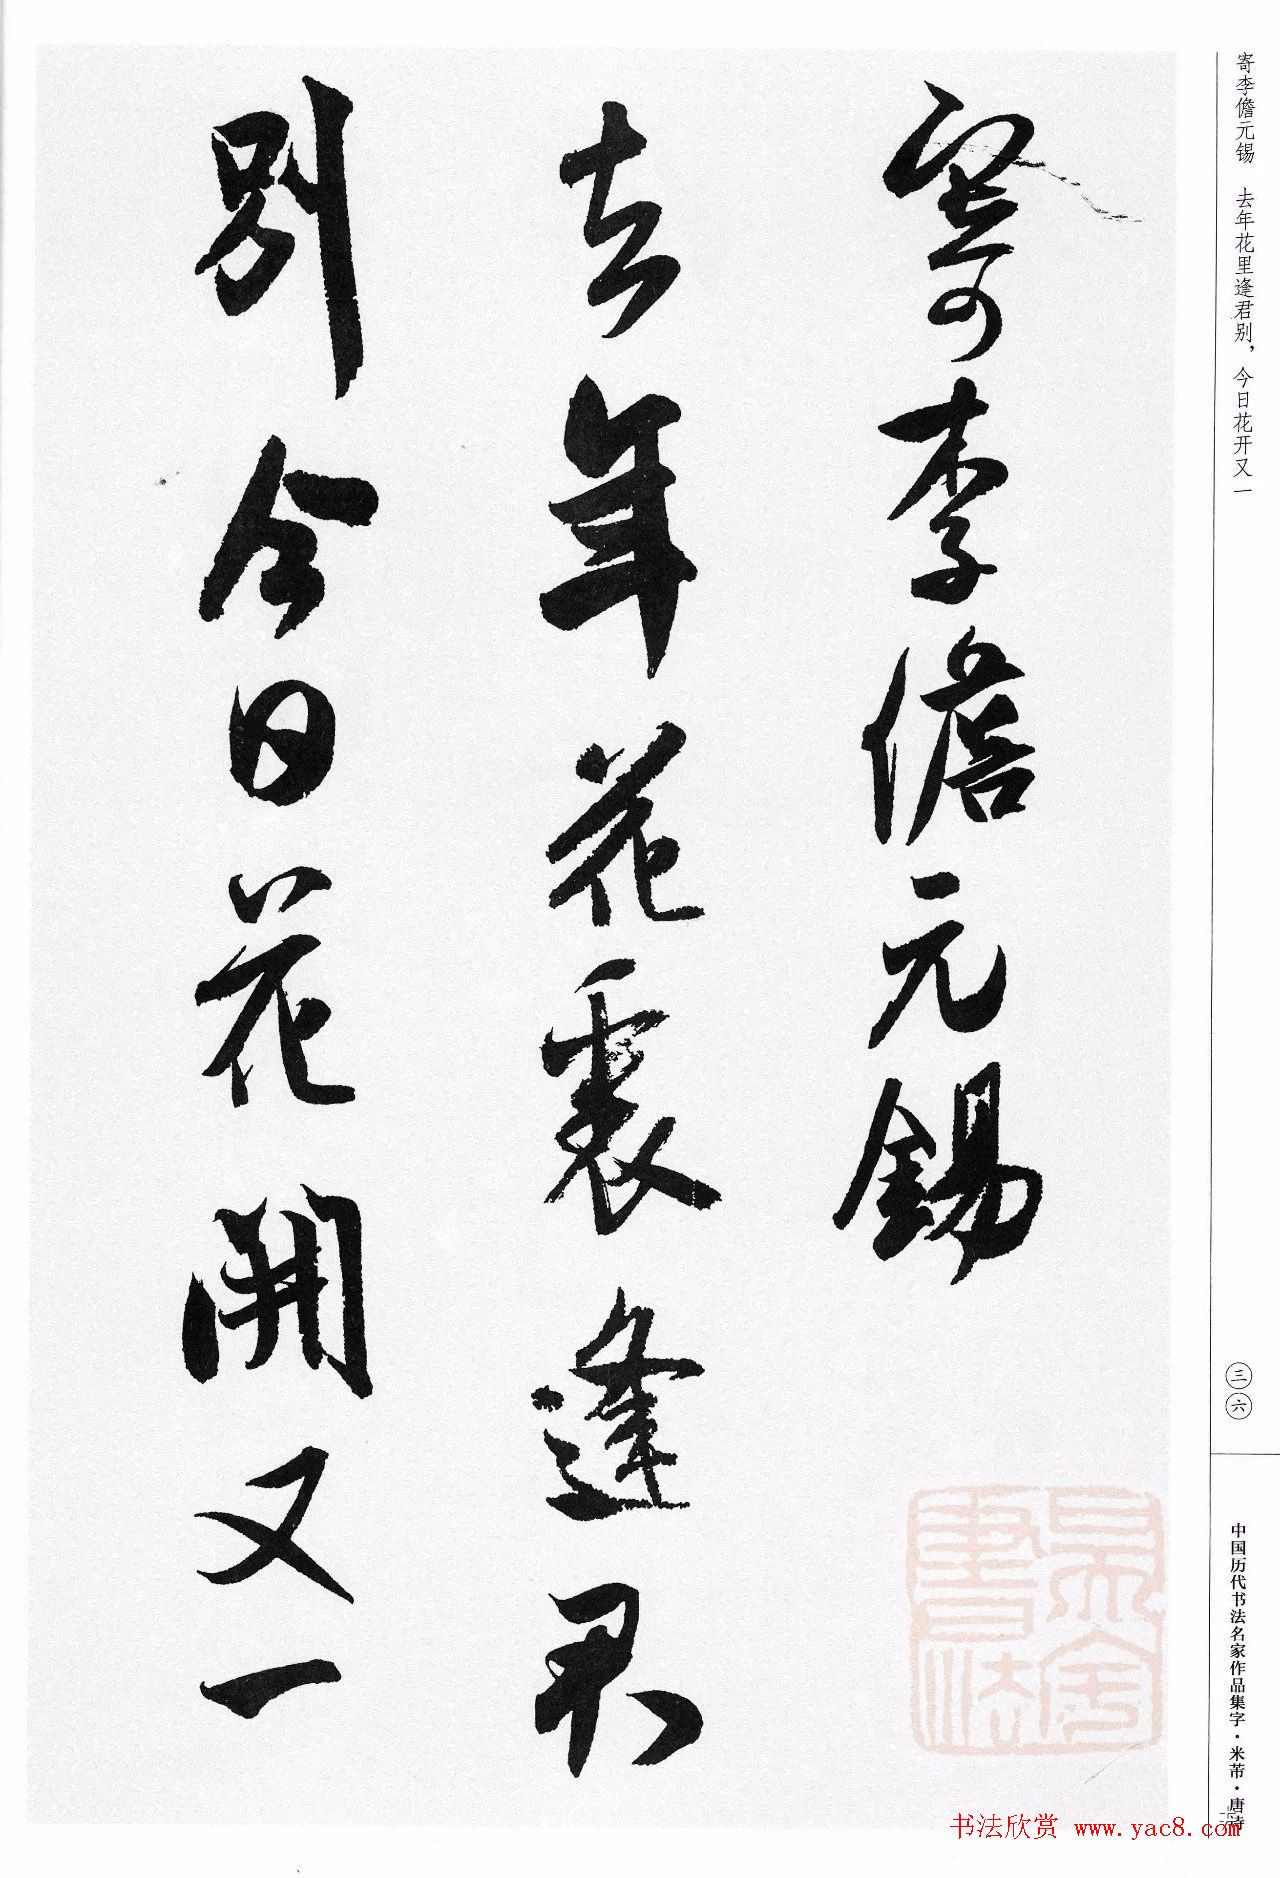 寄李儋元锡　去年花里逢君别，今日花开又一
寄李儋元錫
去年花裏逢君
別今日花開又一
三六
中国历代书法名家作品集字・米芾・唐诗
书法欣赏 www.yac8.com